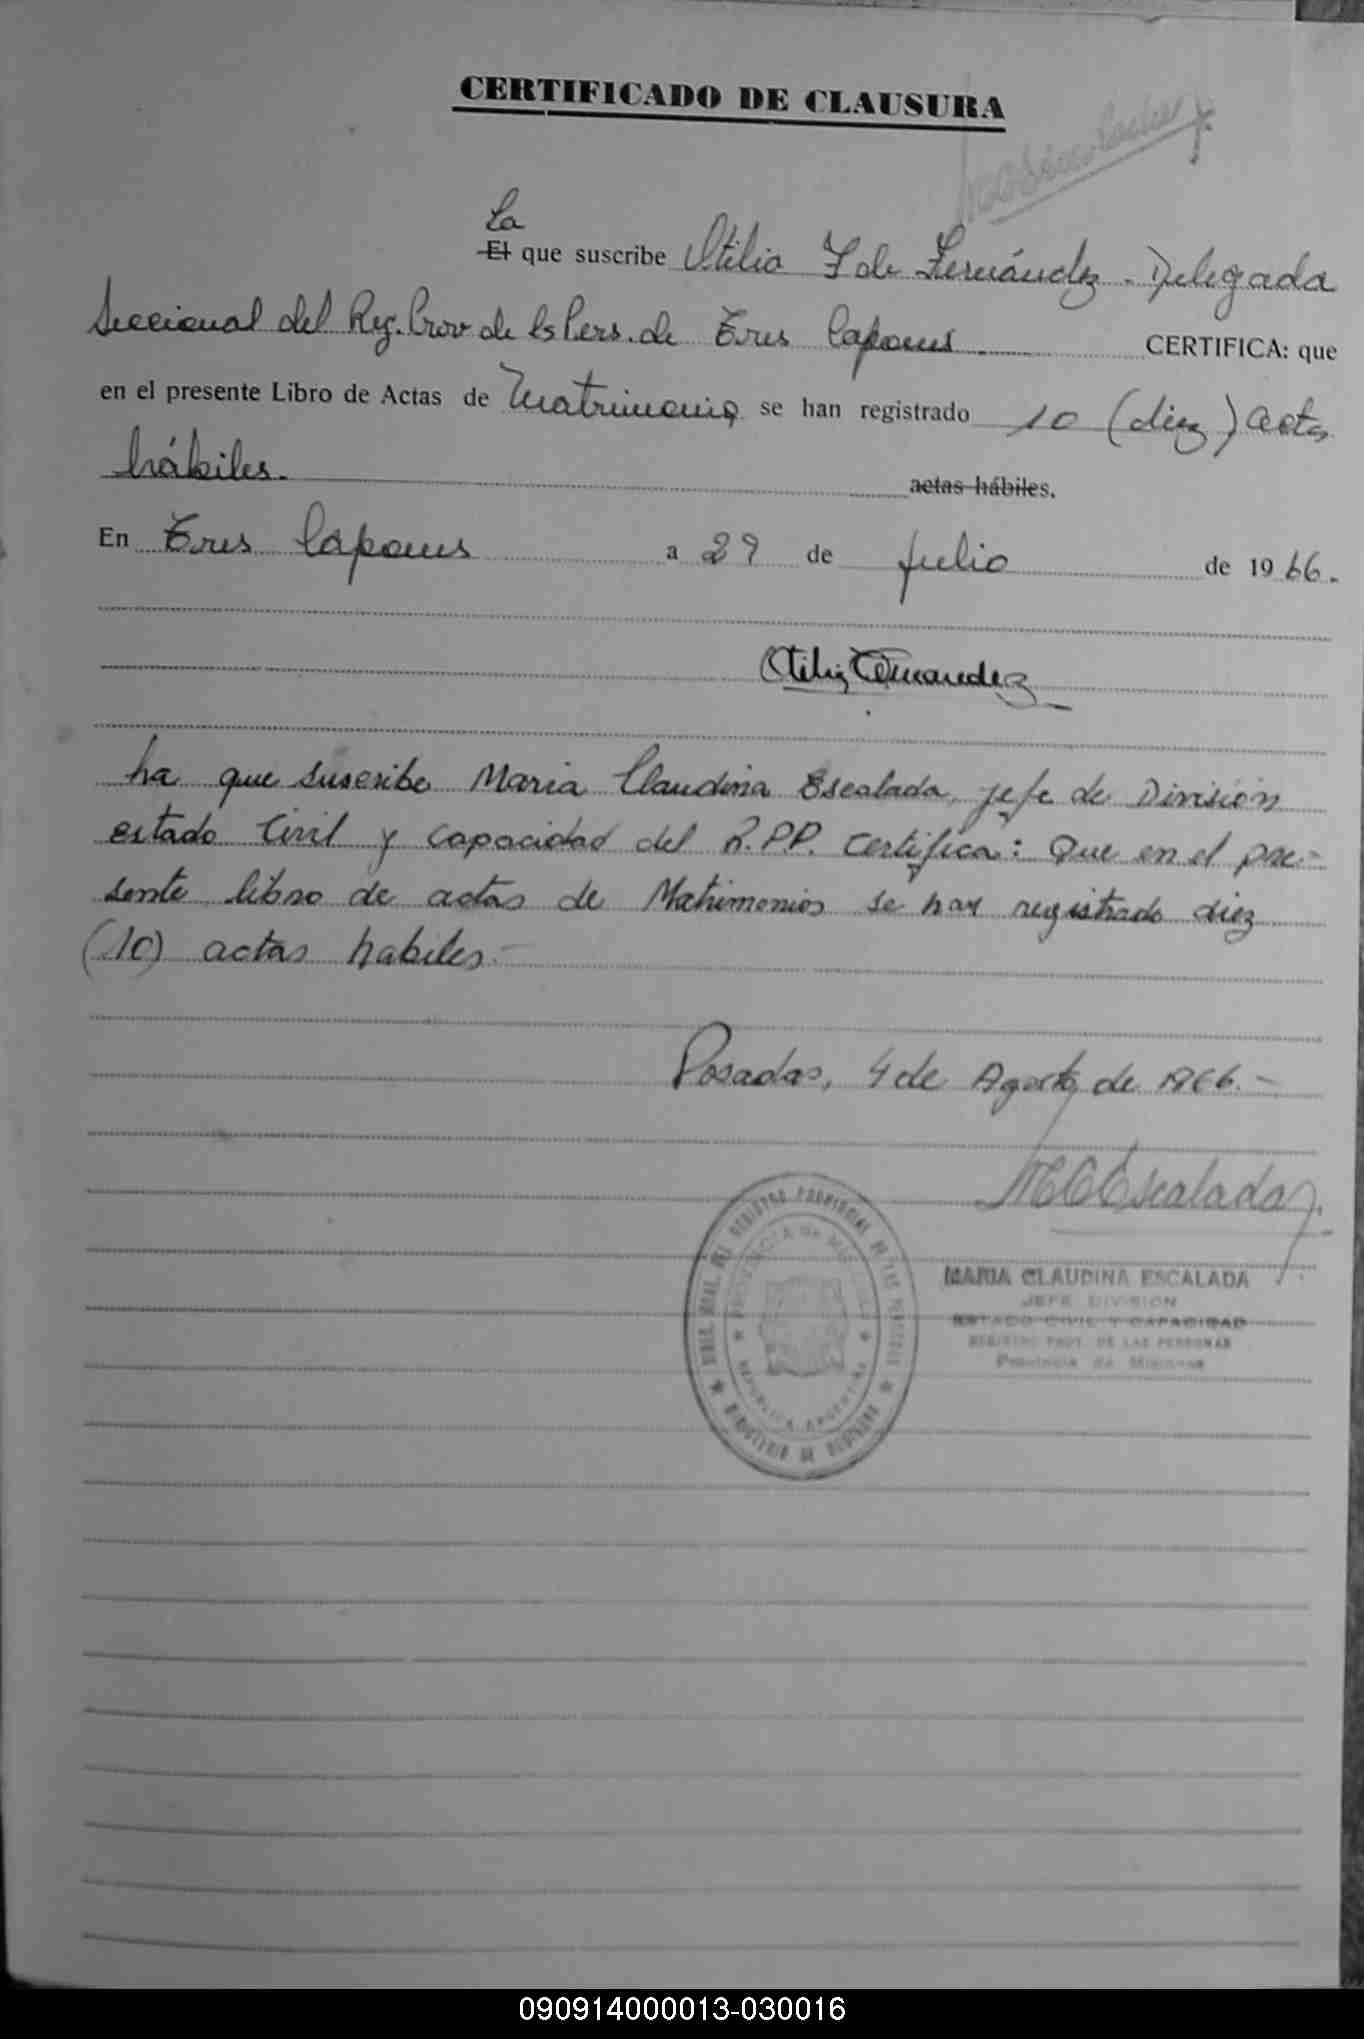 CERTIFICADO DE CLAUSURA
La
El que suscribe Otilia F de Fernández - Delegada
Seccional del Reg. Prov. de ls Pers. de Tres Capones CERTIFICA: que
en el presente Libro de Actas de Matrimonio se han registrado 10 (diez) actas
hábiles. actas hábiles.
En Tres Capones a 29 de Julio de 1966.
Otilia Fernandez
La que suscribe Maria Claudina Escalada, jefe de División
estado Civil y capacidad del R.P.P. Certifica: Que en el pre-
sente libro de actas de Matrimonios se han registrado diez
(10) actas habiles -
Posadas, 4 de Agosto de 1966.-
MCEscalada
DEL REGISTRO PROVINCIAL DE LAS PERSONAS
PROVINCIA DE MISIONES
REPUBLICA ARGENTINA
MINISTERIO DE GOBIERNO
MARIA CLAUDINA ESCALADA
JEFE DIVISION
ESTADO CIVIL Y CAPACIDAD
REGISTRO PROV. DE LAS PERSONAS
Provincia de Misiones
090914000013-030016